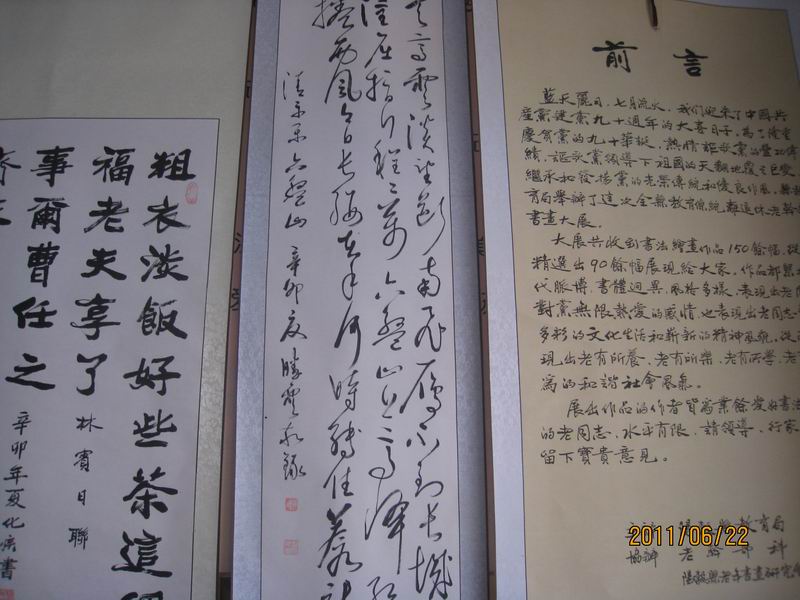 前言
藍天麗日,七月流火,我們迎來了中國共
產黨建黨九十週年的大喜日子,為了隆重
慶賀黨的九十華誕,熱情謳歌黨的豐功偉
績,謳歌黨領導下祖國的天翻地覆之巨變
繼承和發揚黨的光榮傳統和優良作風,縣教
育局舉辦了這次全縣教育系統離退休老幹
書畫大展。
大展共收到書法繪畫作品150餘幅,從
精選出90餘幅展現給大家,作品都
代脈搏,書體迥異,風格多樣,表現出老同
對黨無限熱愛的感情,也表現出老同志
多彩的文化生活和嶄新的精神風貌,從
現出老有所養、老有所樂、老有所學、老
為的和諧社會風氣。
展出作品的作者皆為業餘愛好書法
的老同志,水平有限,請領導、行家
留下寶貴意見。
教育局
協辦 老幹部科
老年書畫研究
天高雲淡望斷南飛雁不到長城
漢屈指行程二萬六盤山上高峰紅
捲西風今日長纓在手何時縛住蒼龍
清平樂六盤山 辛卯夏
粗衣淡飯好些茶這個
福老夫享了
林賓日聯
事爾曹任之
辛卯年夏化 書
2011/06/22